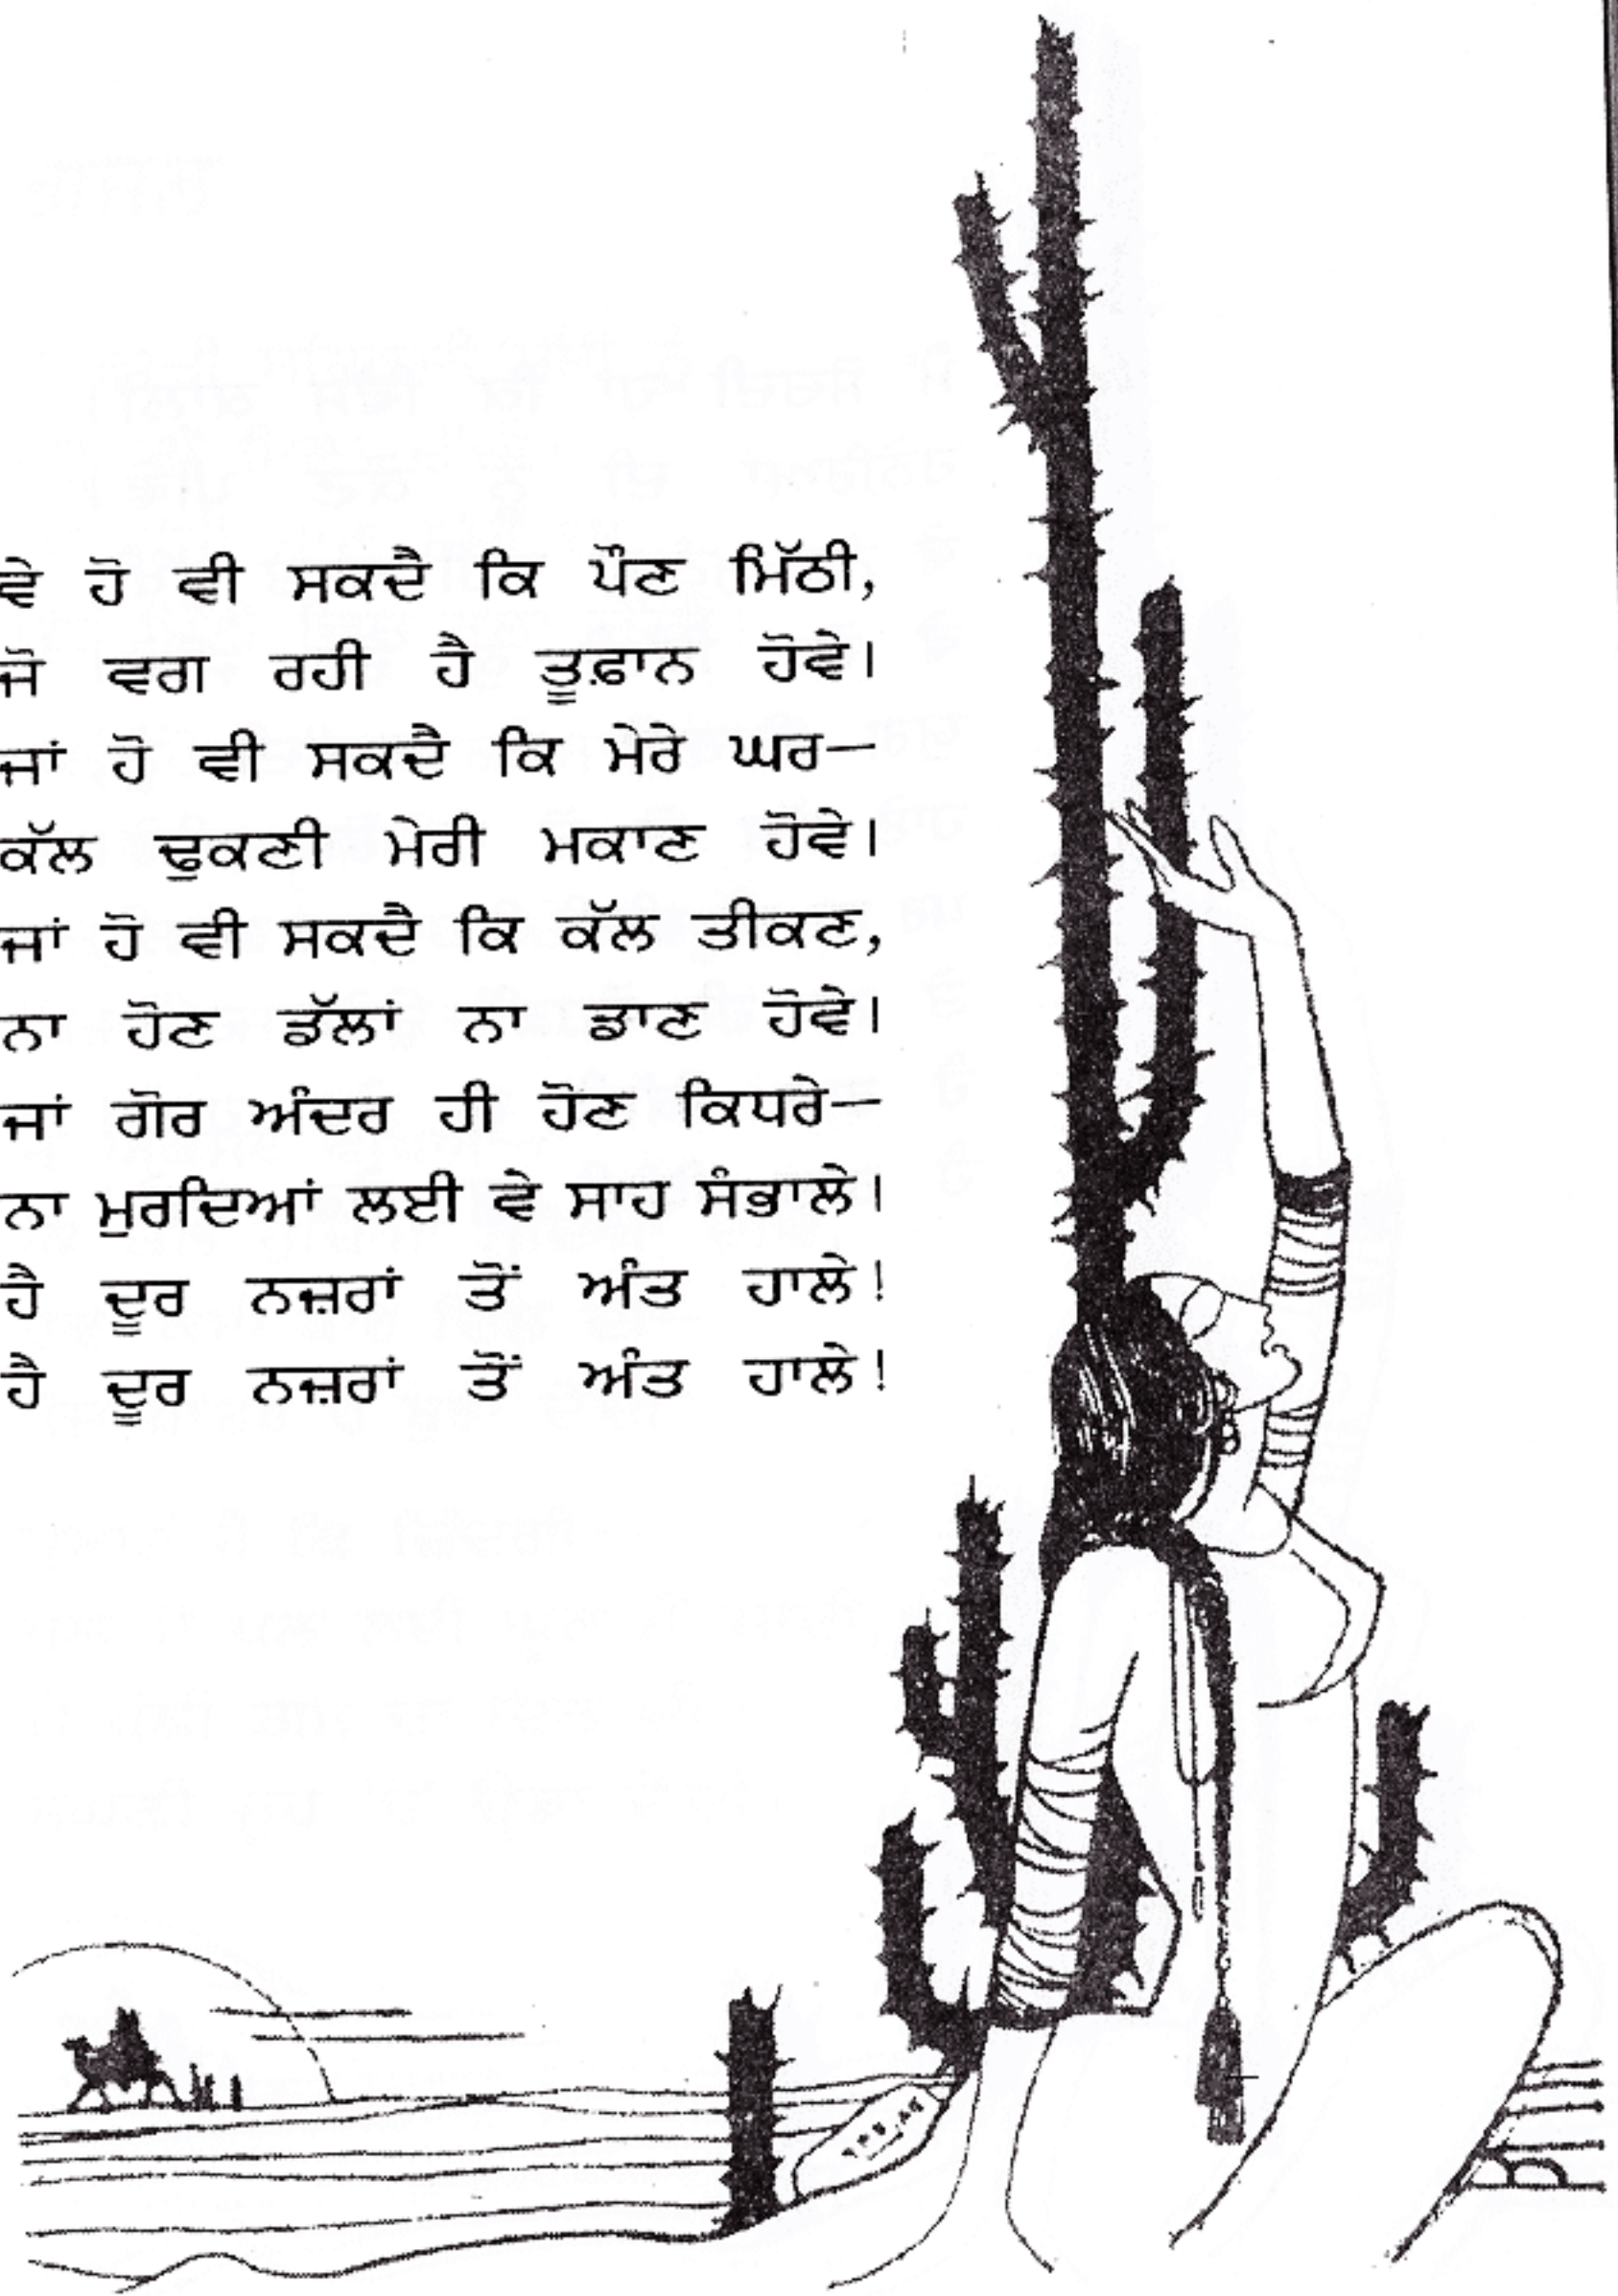 ਵੇ ਹੋ ਵੀ ਸਕਦੈ ਕਿ ਪੌਣ ਮਿੱਠੀ,
ਜੋ ਵਗ ਰਹੀ ਹੈ ਤੂਫ਼ਾਨ ਹੋਵੇ।
ਜਾਂ ਹੋ ਵੀ ਸਕਦੈ ਕਿ ਮੇਰੇ ਘਰ—
ਕੱਲ ਢੁਕਣੀ ਮੇਰੀ ਮਕਾਣ ਹੋਵੇ।
ਜਾਂ ਹੋ ਵੀ ਸਕਦੈ ਕਿ ਕੱਲ ਤੀਕਣ,
ਨਾ ਹੋਣ ਡੱਲਾਂ ਨਾ ਡਾਣ ਹੋਵੇ।
ਜਾਂ ਗੋਰ ਅੰਦਰ ਹੀ ਹੋਣ ਕਿਧਰੇ—
ਨਾ ਮੁਰਦਿਆਂ ਲਈ ਵੇ ਸਾਹ ਸੰਭਾਲੇ।
ਹੈ ਦੂਰ ਨਜ਼ਰਾਂ ਤੋਂ ਅੰਤ ਹਾਲੇ!
ਹੈ ਦੂਰ ਨਜ਼ਰਾਂ ਤੋਂ ਅੰਤ ਹਾਲੇ!